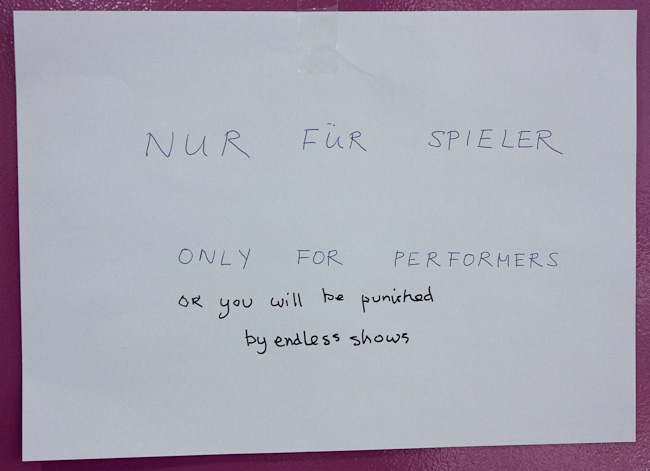 NUR FÜR SPIELER
ONLY FOR PERFORMERS
OR you will be punished
by endless shows